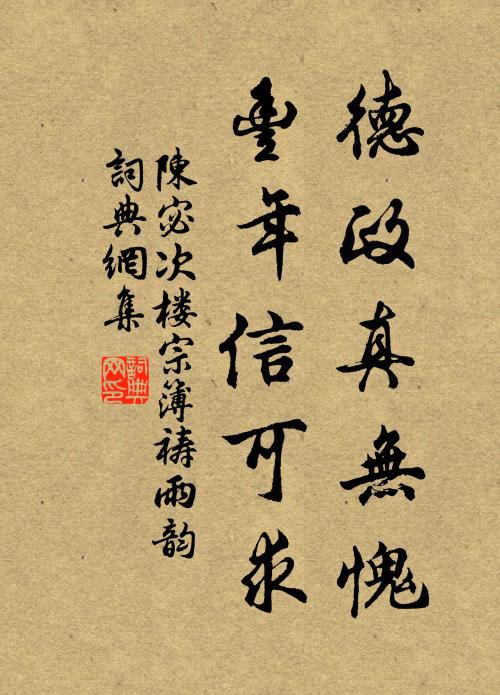 德政真無愧
豐年信可求
陳宓次楼宗簿禱雨韵
詞典網集
詞典網印